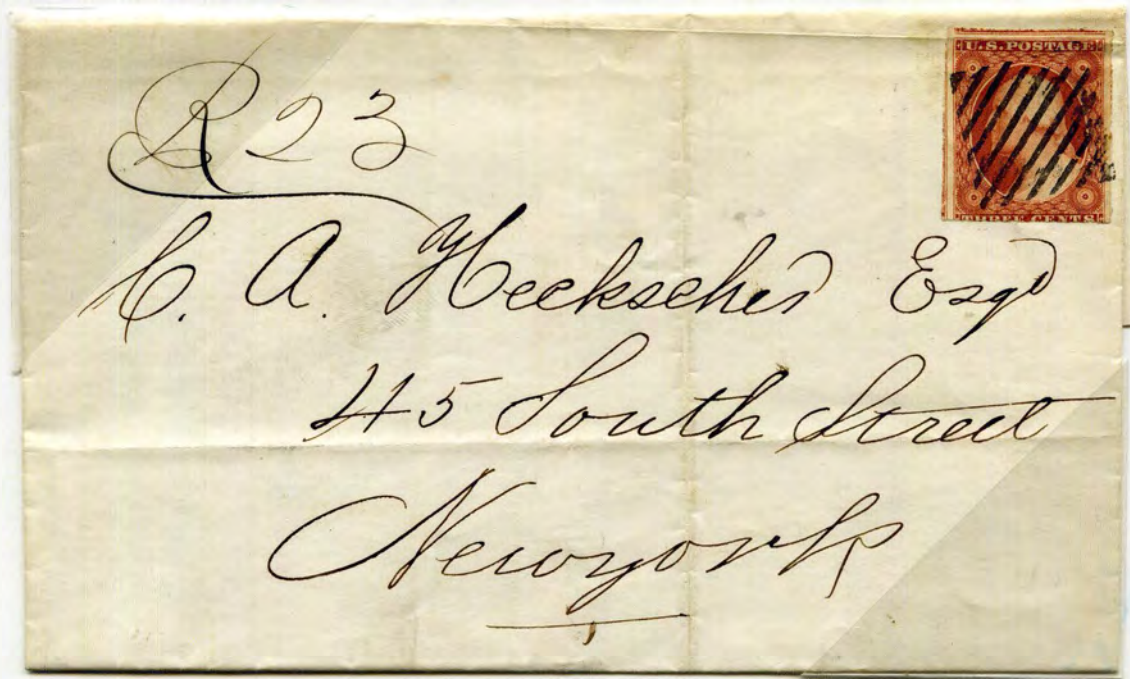 U.S. POSTAGE
THREE CENTS
R 23
C. A. Heckscher Esqr
45 South Street
Newyork